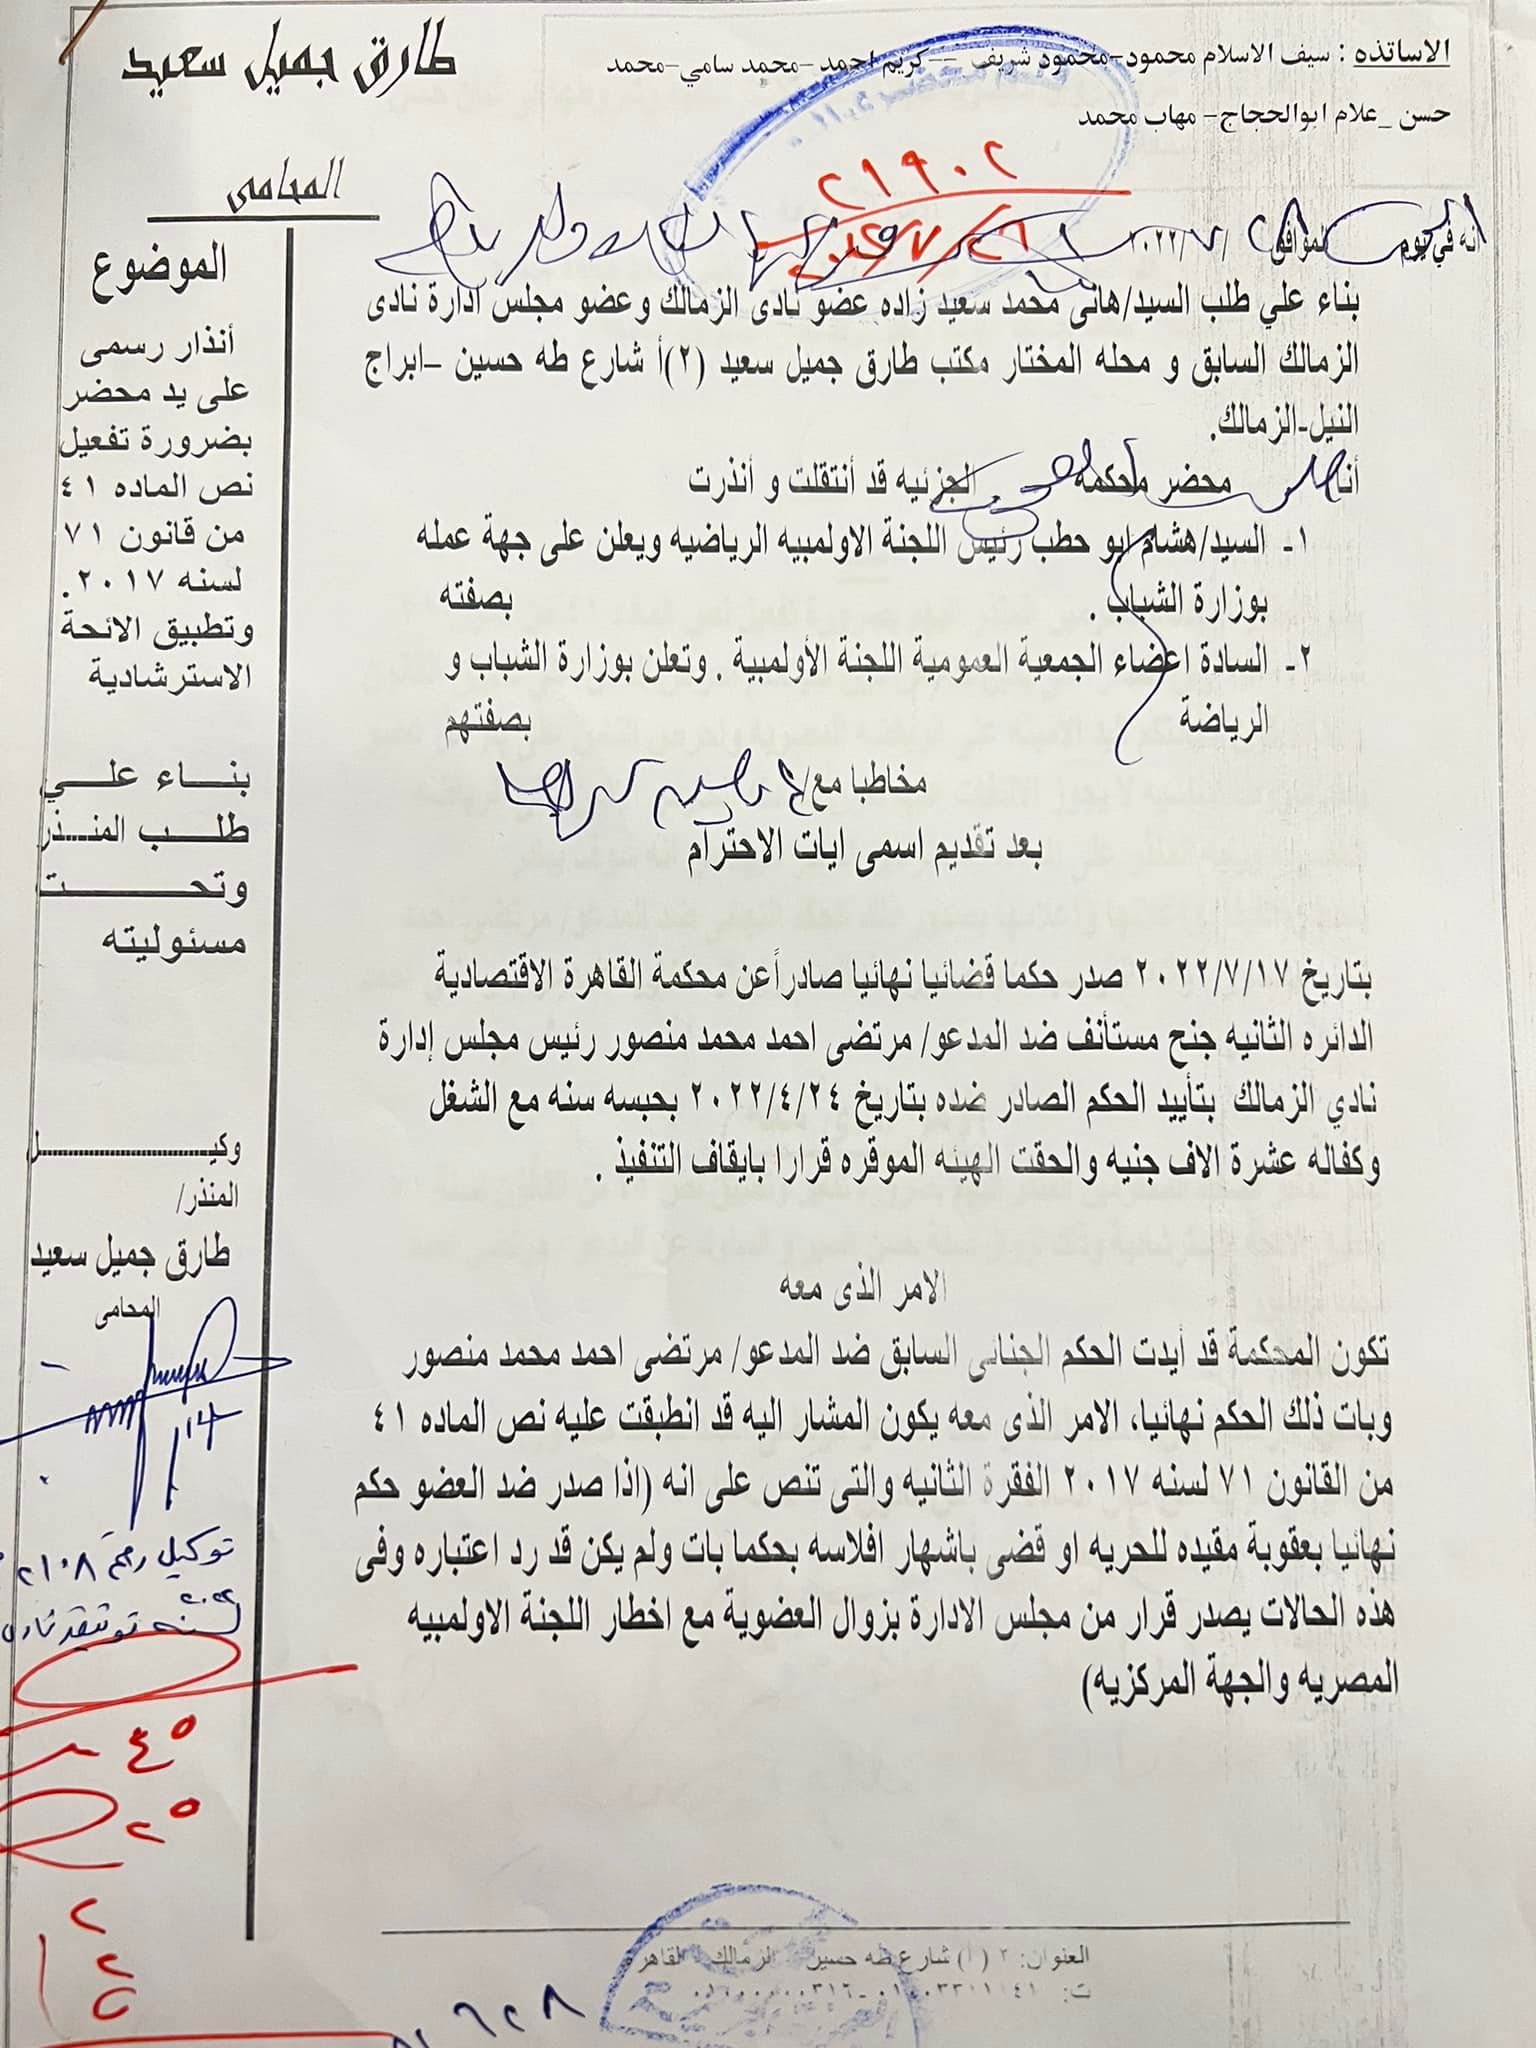 الاساتذه : سيف الاسلام محمود-محمود شريف --كريم احمد -محمد سامي-محمد
حسن _علام ابوالحجاج- مهاب محمد
طارق جميل سعيد
المحامى
٢١٩٠٢
انه في يوم الموافق / ٧/ ٢٠٢٢
بناء علي طلب السيد/هانى محمد سعيد زاده عضو نادى الزمالك وعضو مجلس ادارة نادى
الزمالك السابق و محله المختار مكتب طارق جميل سعيد (٢)أ شارع طه حسين –ابراج
النيل-الزمالك.
أنا محضر محكمة الجزئيه قد أنتقلت و أنذرت
١- السيد/هشام ابو حطب رئيس اللجنة الاولمبيه الرياضيه ويعلن على جهة عمله
بوزارة الشباب . بصفته
٢- السادة اعضاء الجمعية العمومية اللجنة الأولمبية . وتعلن بوزارة الشباب و
الرياضة بصفتهم
مخاطبا مع/
بعد تقديم اسمى ايات الاحترام
بتاريخ ٢٠٢٢/٧/١٧ صدر حكما قضائيا نهائيا صادراً عن محكمة القاهرة الاقتصادية
الدائره الثانيه جنح مستأنف ضد المدعو/ مرتضى احمد محمد منصور رئيس مجلس إدارة
نادي الزمالك بتأييد الحكم الصادر ضده بتاريخ ٢٠٢٢/٤/٢٤ بحبسه سنه مع الشغل
وكفاله عشرة الاف جنيه والحقت الهيئه الموقره قرارا بايقاف التنفيذ .
الامر الذى معه
تكون المحكمة قد أيدت الحكم الجنائى السابق ضد المدعو/ مرتضى احمد محمد منصور
وبات ذلك الحكم نهائيا، الامر الذى معه يكون المشار اليه قد انطبقت عليه نص الماده ٤١
من القانون ٧١ لسنه ٢٠١٧ الفقرة الثانيه والتى تنص على انه (اذا صدر ضد العضو حكم
نهائيا بعقوبة مقيده للحريه او قضى باشهار افلاسه بحكما بات ولم يكن قد رد اعتباره وفى
هذه الحالات يصدر قرار من مجلس الادارة بزوال العضوية مع اخطار اللجنة الاولمبيه
المصريه والجهة المركزيه)
الموضوع
أنذار رسمى
على يد محضر
بضرورة تفعيل
نص الماده ٤١
من قانون ٧١
لسنه ٢٠١٧.
وتطبيق الائحة
الاسترشادية
بناء علي
طلب المنذر
وتحت
مسئوليته
وكيل
المنذر/
طارق جميل سعيد
المحامى
توكيل رقم ٢١٠٨
٢٠٢٢
٤٥
٢٥
٢
٢
العنوان: ٢ (أ) شارع طه حسين الزمالك القاهرة
ت: